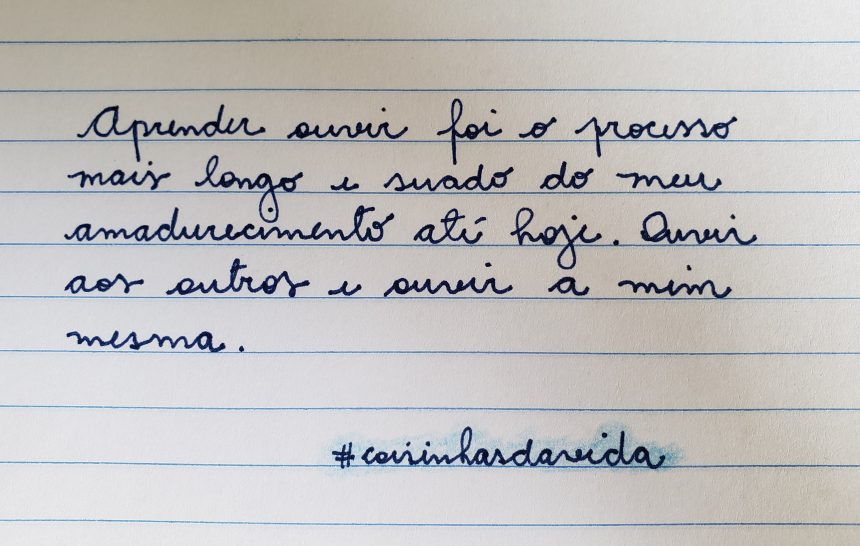 Aprender ouvir foi o processo
mais longo e suado do meu
amadurecimento até hoje. Ouvir
aos outros e ouvir a mim
mesma.
#coisinhasdavida